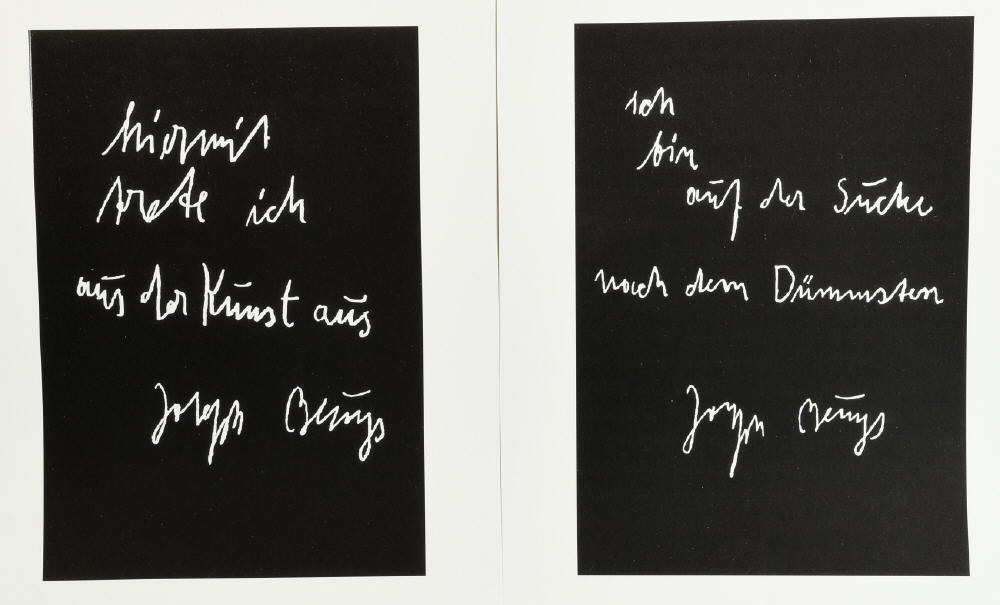 hiermit
trete ich
aus der Kunst aus
Joseph Beuys
ich
bin
auf der Suche
nach dem Dümmsten
Joseph Beuys